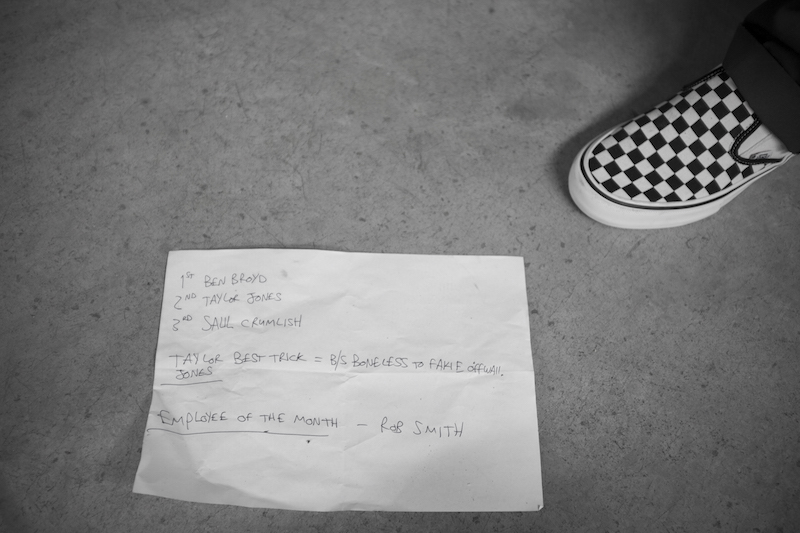 1ST BEN BROYD
2ND TAYLOR JONES
3RD SAUL CRUMLISH
TAYLOR BEST TRICK = B/S BONELESS TO FAKIE OFF WALL.
JONES
EMPLOYEE OF THE MONTH - ROB SMITH